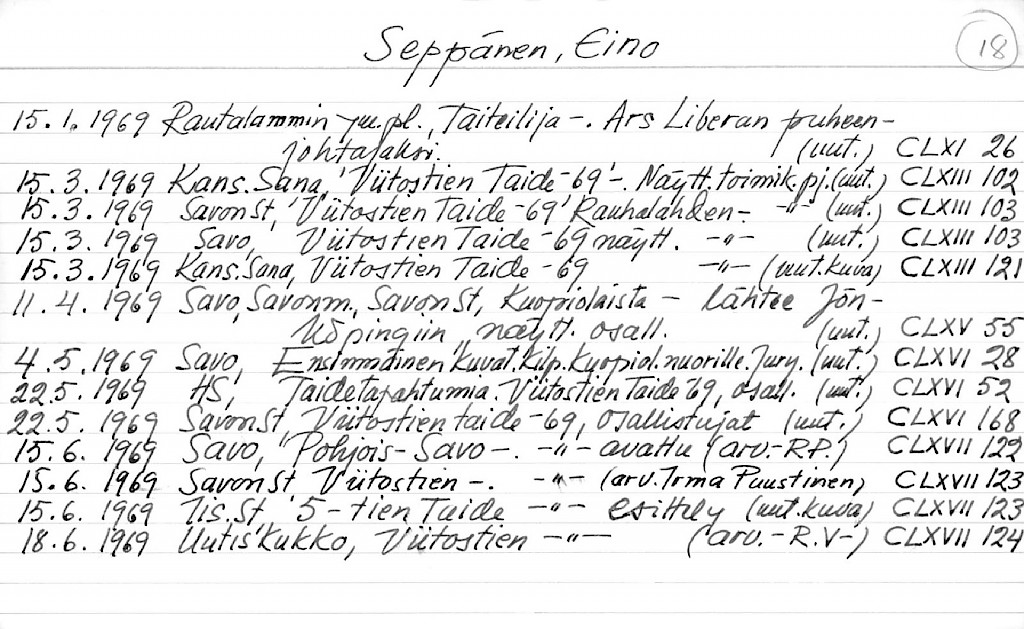 Seppänen, Eino 18
15.1.1969 Rautalammin ym.pl., Taiteilija-. Ars Liberan puheen-
johtajaksi. (uut.) CLXI 26
15.3.1969 Kans.Sana, 'Viitostien Taide-69'-. Näytt.toimik.pj.(uut.) CLXIII 102
15.3.1969 SavonSt, 'Viitostien Taide-69' Rauhalahden- -"- (uut.) CLXIII 103
15.3.1969 Savo, Viitostien Taide-69 näytt. -"- (uut.) CLXIII 103
15.3.1969 Kans.Sana, Viitostien Taide-69 -"- (uut.kuva) CLXIII 121
11.4.1969 Savo, Savonm., SavonSt, Kuopiolaista - lähtee Jön-
köpingiin näytt. osall. (uut.) CLXV 55
4.5.1969 Savo, Ensimmäinen Kuvat.Kilp.Kuopiol.nuorille.Jury. (uut.) CLXVI 28
22.5.1969 HS, Taidetapahtumia. Viitostien Taide 69, osall. (uut.) CLXVI 52
22.5.1969 SavonSt, Viitostien taide-69, osallistujat (uut.) CLXVI 168
15.6.1969 Savo, 'Pohjois-Savo-. -"- avattu (arv.-R.P.) CLXVII 122
15.6.1969 SavonSt, Viitostien -. -"- (arv.Irma Puustinen) CLXVII 123
15.6.1969 Iis.St, 5-tien Taide -"- esittely (uut.kuva) CLXVII 123
18.6.1969 Uutis'Kukko, Viitostien -"- (arv.-R.V-) CLXVII 124